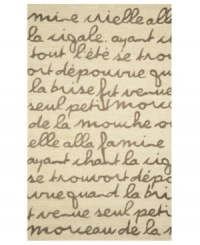 mine crielle alle
la cigale. ayant c
tout l'été se trou
ort dépourvue qu
la brise fut venue
seul petit morce
de la mouche ou
elle alla famine
ayant chant la cig
se trouvort dépo
vue quand la bri
t venue seul petit
morceau de mou